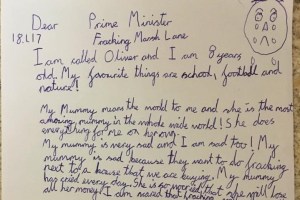 Dear Prime Minister
18.1.17 Fracking Marsh Lane
I am called Oliver and I am 8 years
old. My favourite things are school, football and
nature!
My Mummy means the world to me and she is the most
amazing mummy in the whole wide world! She does
everything for me on her own!
My mummy is very sad and I am sad too! My
mummy is sad because they want to do fracking
next to a house that we are buying. My mummy
has cried every day. She is so worried that she will lose
all her money! I am scared that fracking